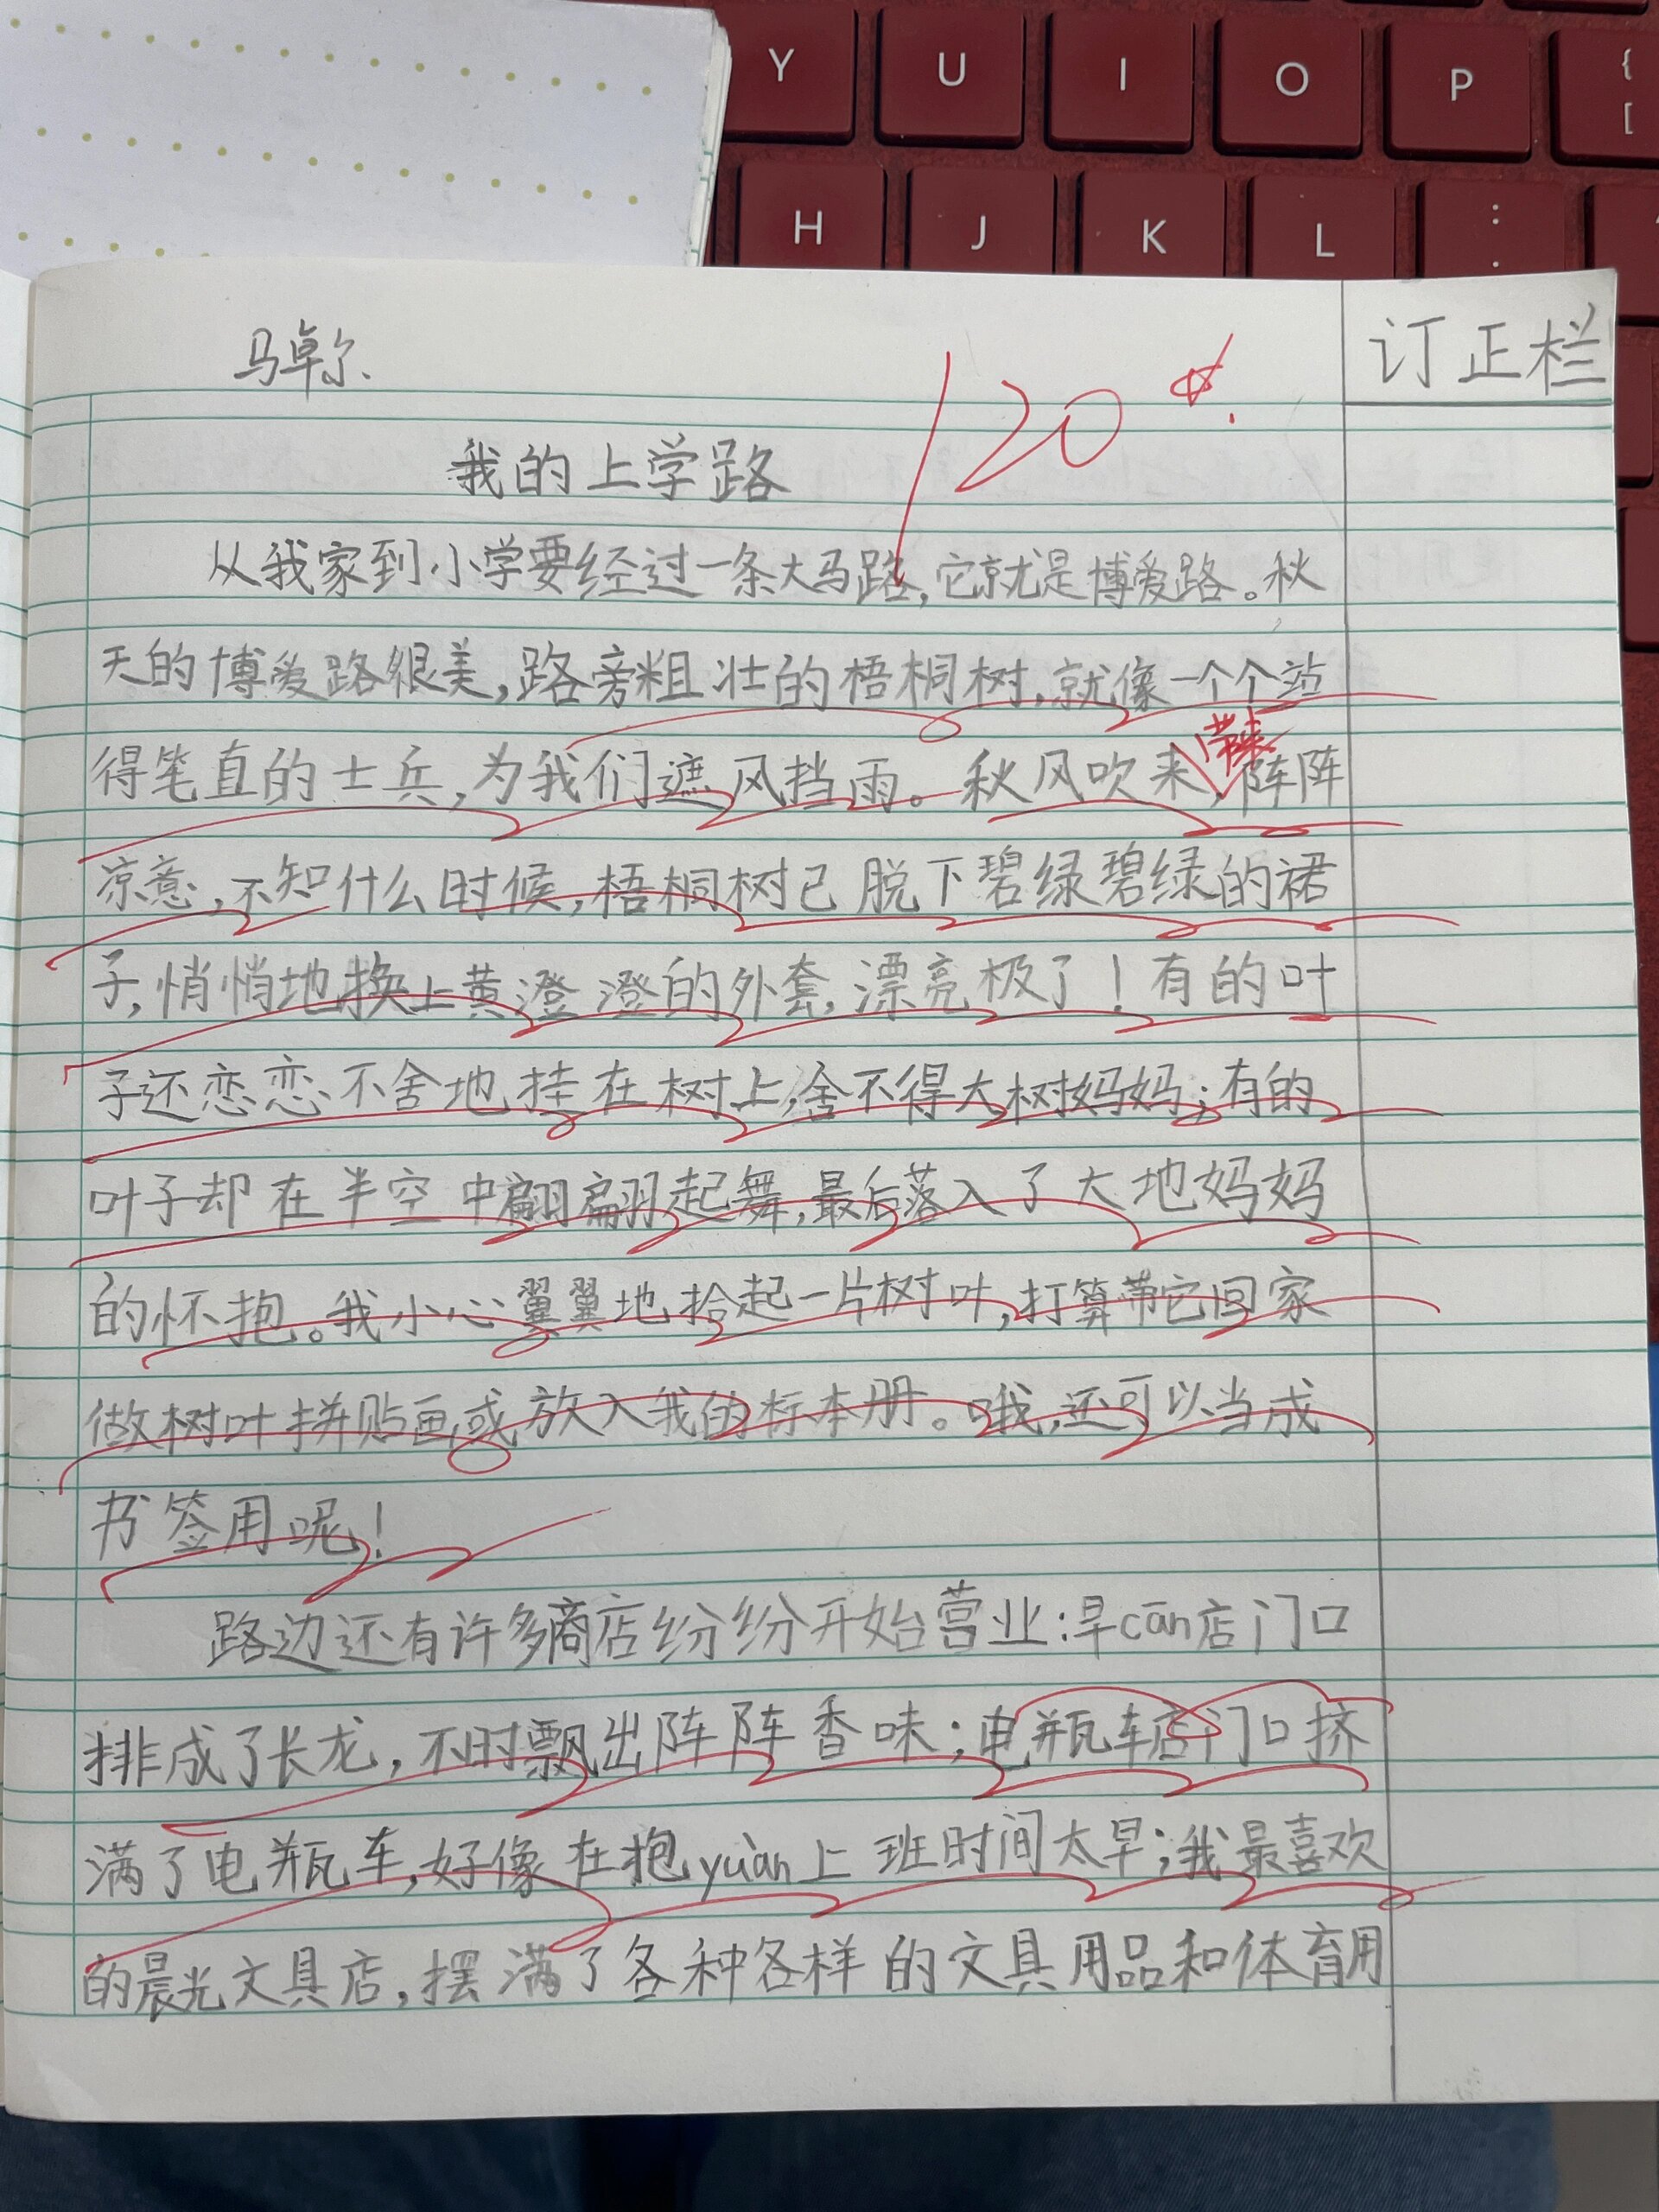 Y U I O P { [
H J K L : .
马卓尔
订正栏
120
我的上学路
从我家到小学要经过一条大马路,它就是博爱路。秋
天的博爱路很美,路旁粗壮的梧桐树,就像一个个站
得笔直的士兵,为我们遮风挡雨。秋风吹来,阵阵
带来
凉意,不知什么时候,梧桐树已脱下碧绿碧绿的裙
子,悄悄地换上黄澄澄的外套,漂亮极了!有的叶
子还恋恋不舍地挂在树上,舍不得大树妈妈;有的
叶子却在半空中翩翩起舞,最后落入了大地妈妈
的怀抱。我小心翼翼地拾起一片树叶,打算带它回家
做树叶拼贴画或放入我的标本册。哦,还可以当成
书签用呢!
路边还有许多商店纷纷开始营业:早cān店门口
排成了长龙,不时飘出阵阵香味;电瓶车店门口挤
满了电瓶车,好像在抱yuàn上班时间太早;我最喜欢
的晨光文具店,摆满了各种各样的文具用品和体育用